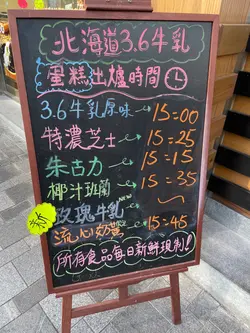 北海道3.6牛乳
蛋糕出爐時間
3.6牛乳原味 → 15:00
特濃芝士 → 15:25
朱古力 → 15:15
椰汁班蘭 → 15:35
新 玫瑰牛乳 ~
流心奶黃 → 15:45
所有食品每日新鮮現制!